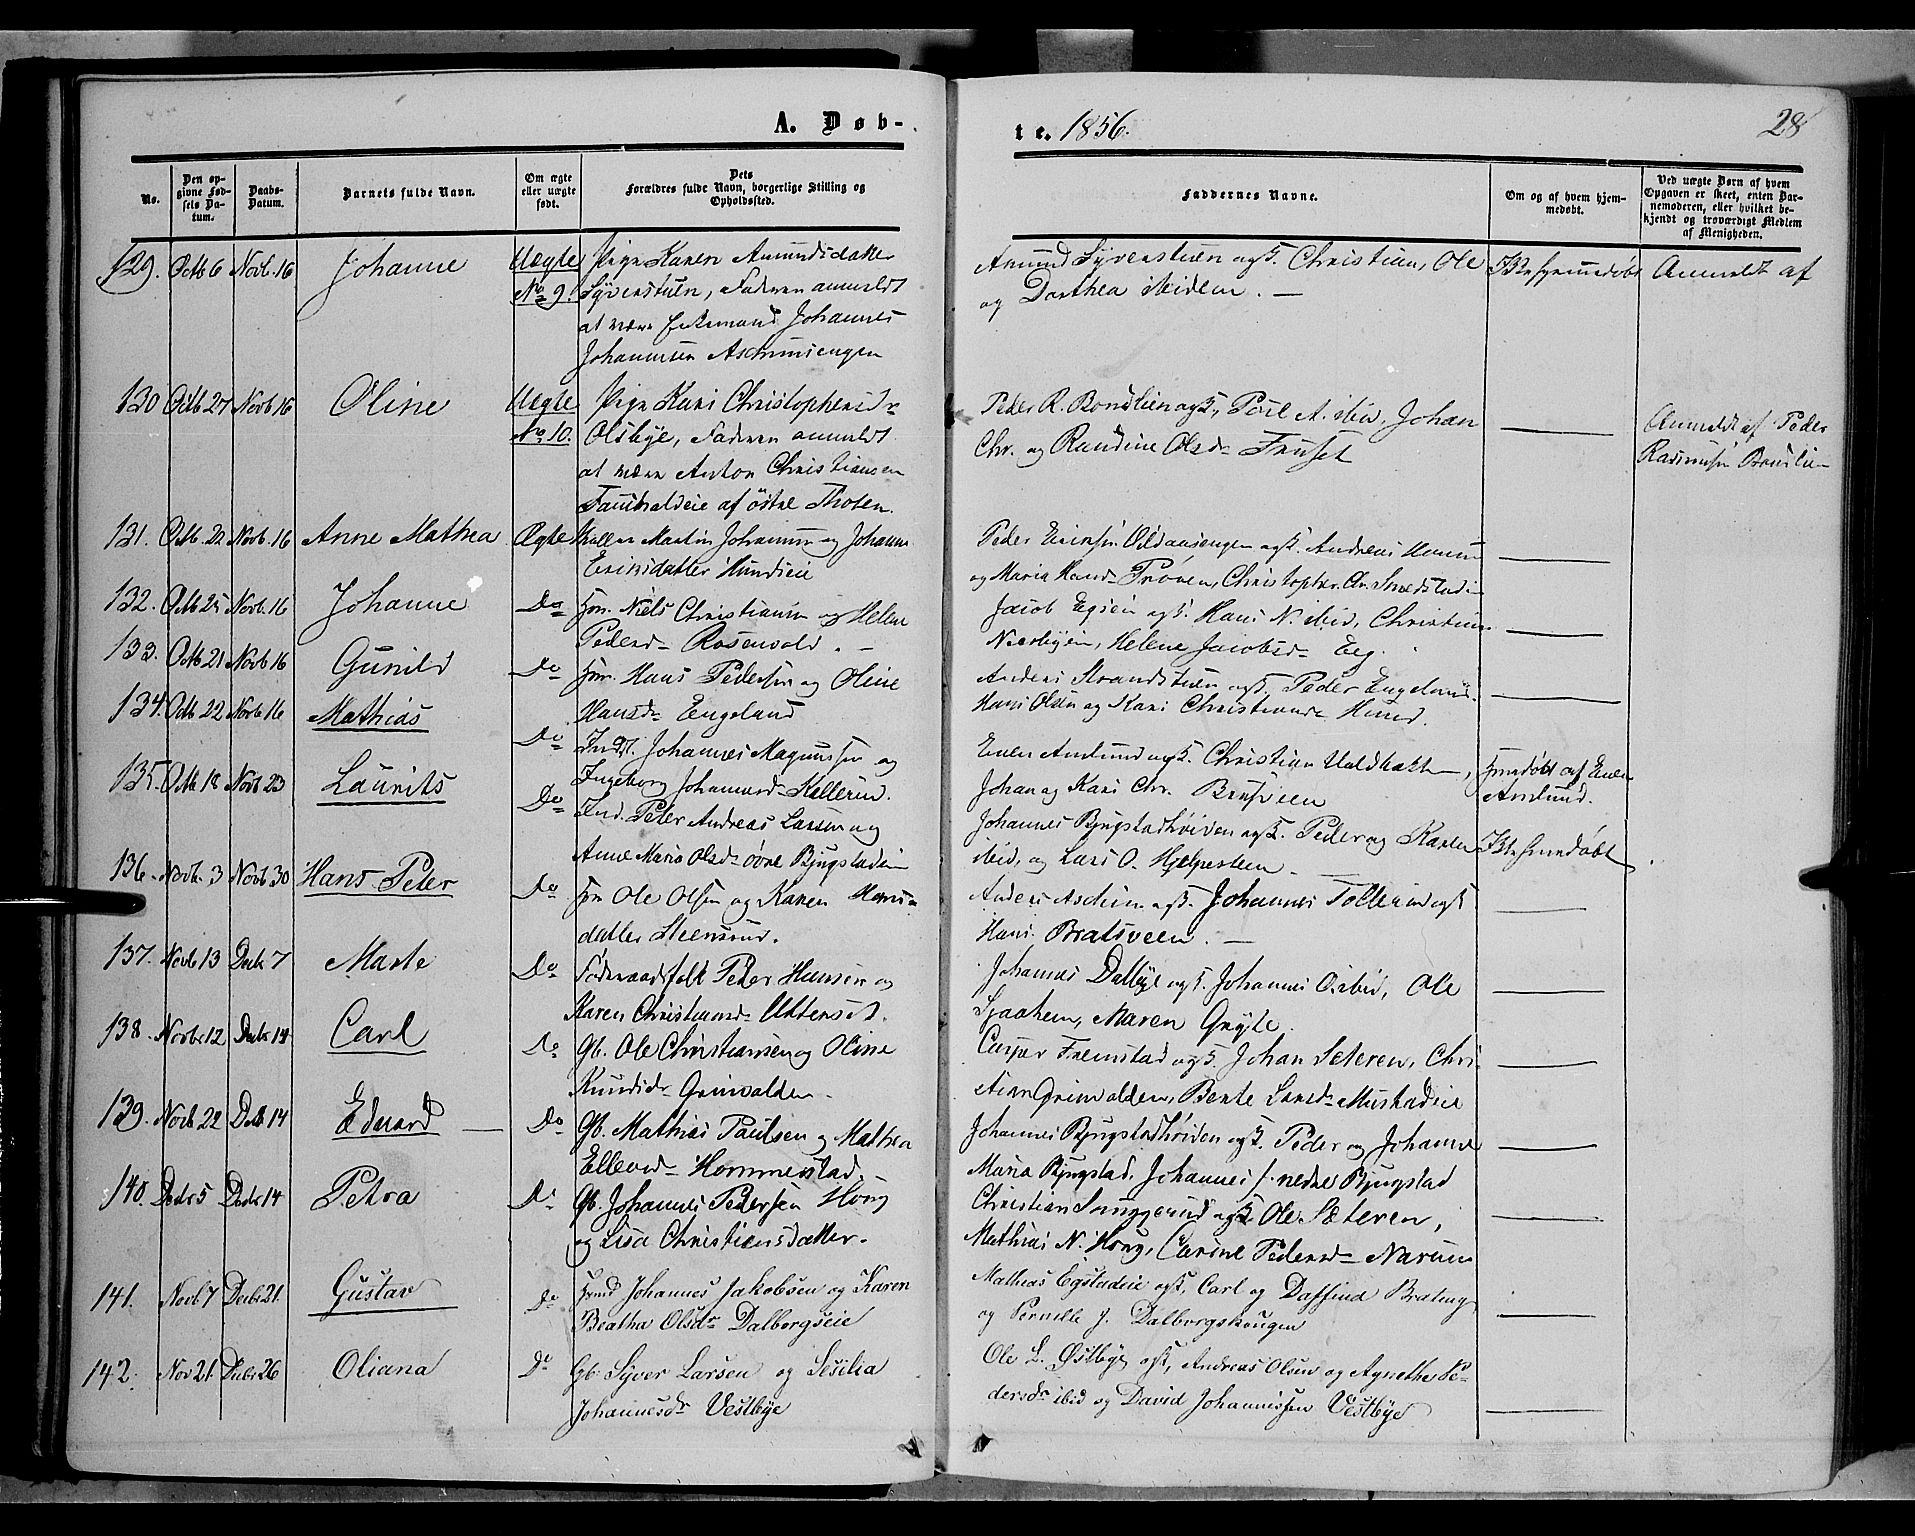 A. Døb-
te. 1856.
28
No.
Den op-
givne Fød-
sels Da-
tum.
Daabs-
Datum.
Barnets fulde Navn.
Om ægte
eller uægte
født.
Dets
Forældres fulde Navn, borgerlige Stilling og
Opholdssted.
Faddernes Navne.
Om og af hvem hjem-
medøbt.
Ved uægte Børn af hvem
Opgaven er skeet, enten Bar-
nemoderen, eller hvilket be-
kjendt og troværdigt Medlem
af Menigheden.
129. Octb 6 Novb. 16 Johanne Uægte Pige Karen Amundsdatter
No 9. Syverstuen, Faderen anmeldt
at være Enkemand Johannes
Johannesen Aschimsengen
Amund Syverstuen ogs. Christian, Ole
og Dorthea ibidem. —
Anmeldt af
130 Octb. 27 Novb. 16 Oline Uægte Pige Kari Christophersdr
No 10. Olsbye, Faderen anmeldt
at være Anton Christiansen
af østre Thoten.
Peder R. Bondlien ogs. Poul A. ibid, Johan
Chr. og Randine Olsdr Fruset
Anmeldt af Peder
Rasmusen Bondlien
131. Octb. 22 Novb. 16 Anne Mathea Ægte Martin Johannesen og Johanne
Ericksdatter Hundseie
Peder Olddaasengen ogs. Andreas
og Maria Hansdr Prøven, Christopher Chr.
132. Octb 25 Novb. 16 Johanne Do Niels Christiansen og Helene
Pedersdr Rosenvold. —
Jacob Egseie ogs. Hans N. ibid, Christian
Helene Jacobsdr Eeg.
133. Octb 21 Novb 16 Gunild Do Hans Pedersen og Oline
Hansdr Engeland
Anders Strandstuen ogs. Peder Engeland
Hans Olsen og Kari Christiansdr Hund.
134. Octb 22 Novb 16 Mathias
Do Johannes Magnussen og
Ingeborg Johannesdr Kollerud.
Even Amlund ogs. Christian
Johan og Kari Chr. Brusveen
Hjemdøbt af Even
Amlund.
135. Octb 18 Novb 23 Laurits
Do Ind. Peter Andreas Larsen og
Anne Maria Olsdr øvre Bjugstadeie
Johannes Bjugstadhøiden ogs. Peder og Karen
ibid, og Lars O. Hjelpesteen —
136. Novb. 3 Novb 30 Hans Peter
Do Ole Olsen og Karen Hans-
datter Steensrud.
Anders Aschim ogs. Johannes Tollerud ogs
Hans Bratsveen. —
137. Novb 13 Decb 7 Marte Do Føderaadsfolk Peder Hansen og
Karen Christiansdr
Johannes Dalbye ogs. Johannes O. ibid, Ole
Sjaaheim, Maren Gryte.
138. Novb 12 Decb 14 Carl Do Gb. Ole Christiansen og Oline
Knudsdr Grinvolden.
Casper Fremstad ogs. Johan Seteren, Chri-
stian Grinvolden, Bente Larsdr Mustadeie
139. Novb 22 Decb 14 Edvard — Do Gb. Mathias Paulsen og Mathea
Ellevsdr Hommerstad
Johannes Bjugstadhøiden ogs. Peder og Johanne
Maria Bjugstad, Johannes J. nedre Bjugstad
140. Decb 5 Decb 14 Petra Do Gb. Johannes Pedersen Hong
og Lisa Christiansdatter.
Christian Snuggerud ogs. Ole Sæteren,
Mathias N. Hong, Carine Pedersdr Narum
141. Novb. 7 Decbr 21. Gustav Do Johannes Jakobsen og Karen
Beatha Olsdr Dalborgseie
Mathias Egstadeie ogs. Carl og Daffind Brateng
og Pernille J. Dalborgshougen
142. Nov 21. Decbr 26 Oliana Do Gb. Syver Larsen og Sesilia
Johannesdr Vestbye
Ole L. Østbye ogs, Andreas Olsen og Agnethe Pe-
dersdr ibid og David Johannissen Vestbye